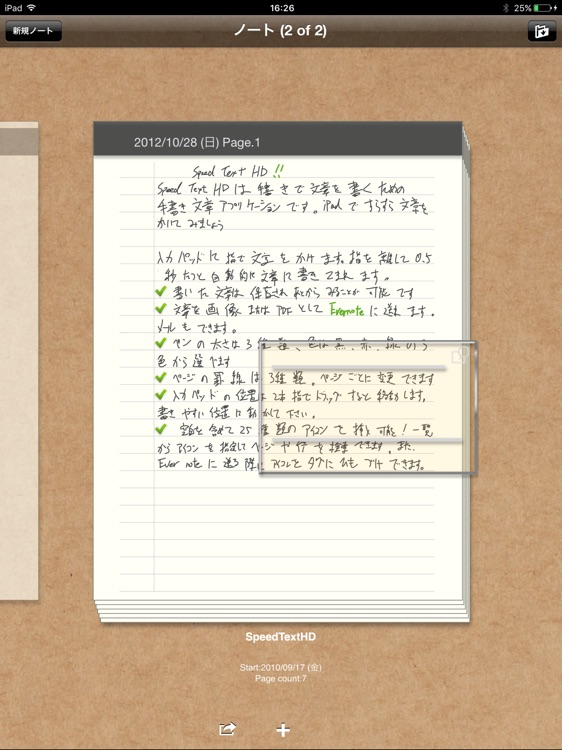 iPad 16:26 25%
新規ノート ノート (2 of 2)
2012/10/28 (日) Page.1
Speed Text HD !!
Speed Text HD は 手書きで文章を書くための
手書き文章アプリケーションです。iPadですらすら文章を
かいてみましょう
入力パッドに指で文字をかけます。指を離して0.5
秒たつと自動的に文章に書きこまれます。
書いた文章は保存されあとからみることが可能です
文章を画像またはPDFとしてEvernoteに送れます。
メールもできます。
ペンの太さは3種類、色は黒、赤、緑のう
色から選べます
ページの罫線は3種類。ページごとに変更できます
入力パッドの位置は2本指でドラッグすると移動します。
書きやすい位置に動かして下さい。
空白を含めて25種類のアイコンを挿入可能!一覧
からアイコンを指定してページや行を検索できます。また、
Evernoteに送る際にアイコンをタグにひもづけできます。
SpeedTextHD
Start:2010/09/17 (金)
Page count:7